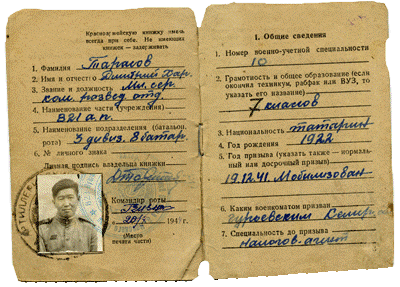 Красноармейскую книжку иметь
всегда при себе. Не имеющих
книжек — задерживать
1. Фамилия Тарасов
2. Имя и отчество Дмитрий
3. Звание и должность Мл. сер.
ком. развед отд
4. Наименование части (учреждения)
321 а.п.
5. Наименование подразделения (батальон,
рота) 3 дивиз. 8 батар.
6. № личного знака
Личная подпись владельца книжки
Командир роты
194 г.
(Место
печати части)
I. Общие сведения
1. Номер военно-учетной специальности
10
2. Грамотность и общее образование (если
окончил техникум, рабфак или ВУЗ, то
указать его название)
7 классов
3. Национальность татарин
4. Год рождения 1922
5. Год призыва (указать также — нормаль-
ный или досрочный призыв)
19.12.41. Мобилизован
6. Каким военкоматом призван
Гурьевским
7. Специальность до призыва
налогов. агент